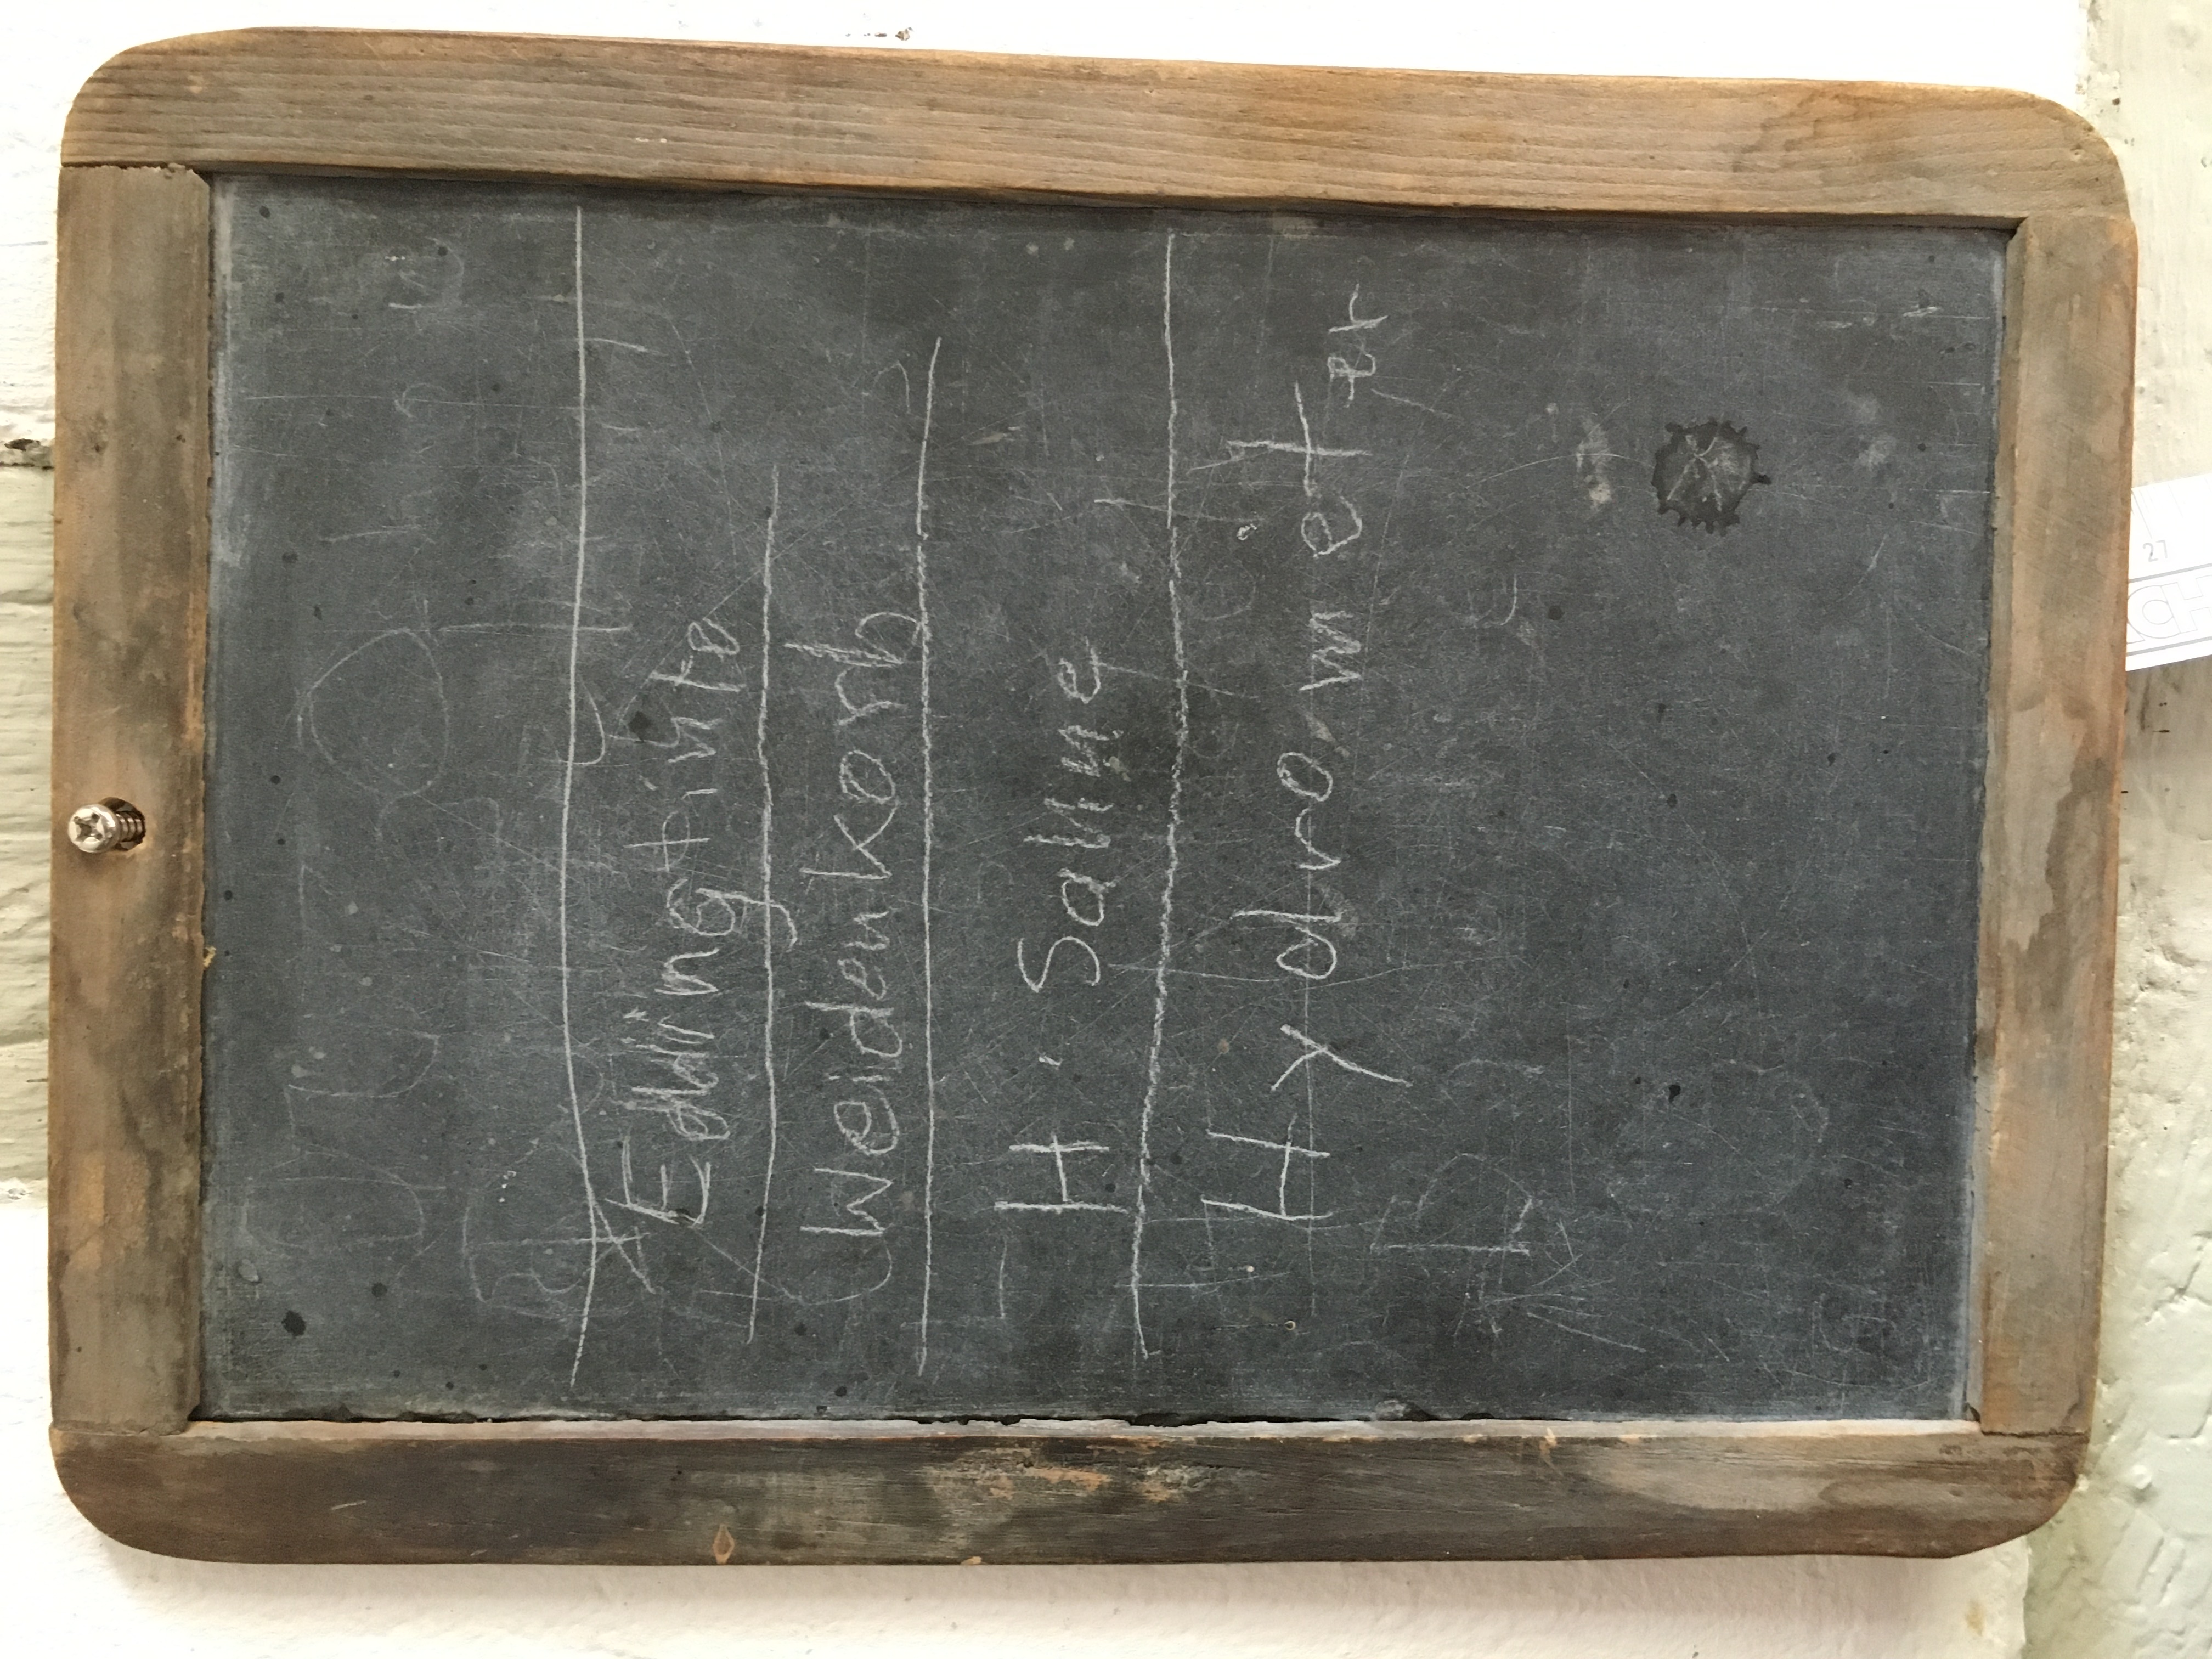 Eddingtinte
Weidenkorb
H. Saline
Hydrometer
27